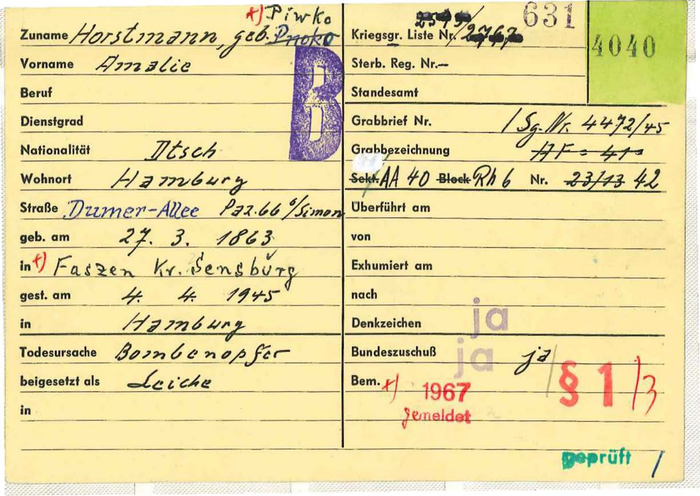 x) Piwko
Zuname Horstmann, geb.
Vorname Amalie
Beruf
Dienstgrad
Nationalität Dtsch
Wohnort Hamburg
Straße Dumer-Allee Paz. 66 b/Simon
geb. am 27. 3. 1863
in x) Faszen Kr. Sensburg
gest. am 4. 4. 1945
in Hamburg
Todesursache Bombenopfer
beigesetzt als Leiche
in
B
631
4040
Kriegsgr. Liste Nr. /2767
Sterb. Reg. Nr.-
Standesamt
Grabbrief Nr. / Sg.-Nr. 4472/45
Grabbezeichnung AF = 41=
Sekt. AA 40 Block Rh 6 Nr. 23/13 42
Überführt am
von
Exhumiert am
nach
Denkzeichen ja
Bundeszuschuß ja ja
Bem. x) 1967 § 1/3
gemeldet
geprüft /